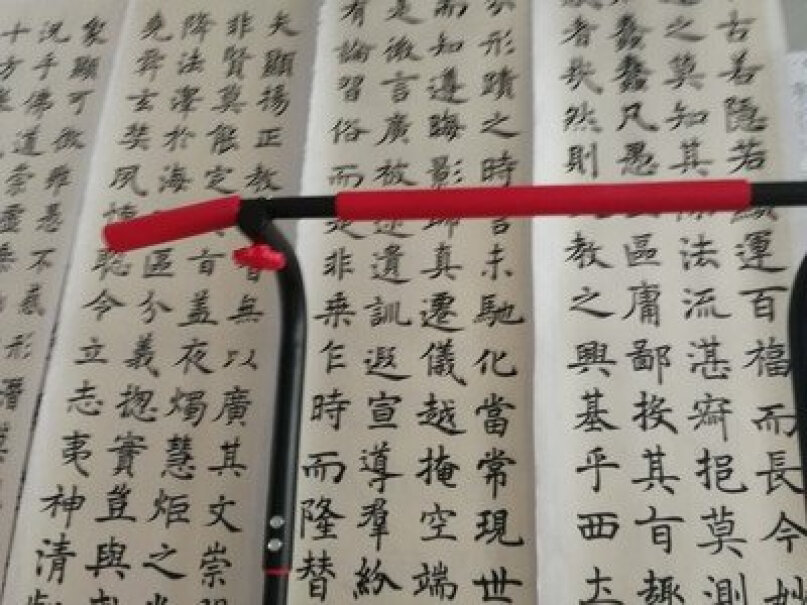 古若隱若運百福而長今
之莫知其法流湛寂挹莫測
蠢蠢凡愚區庸鄙投其旨趣
者哉然則教之興基乎西土
形蹟之時言未馳化當常現世
而知遵晦影歸真遷儀越掩空端
是微言廣被遺訓遐宣導羣紛
有論習俗而是非乗乍時而隆替
夫顯揚正教智無以廣其文崇
非賢莫能定旨蓋夜燭慧炬之
降法澤於海區分義揔實豈與
玄奘夙聰令立志夷神清
象顯可徵雖愚不惑形潛莫
況乎佛道崇虛乗
十方